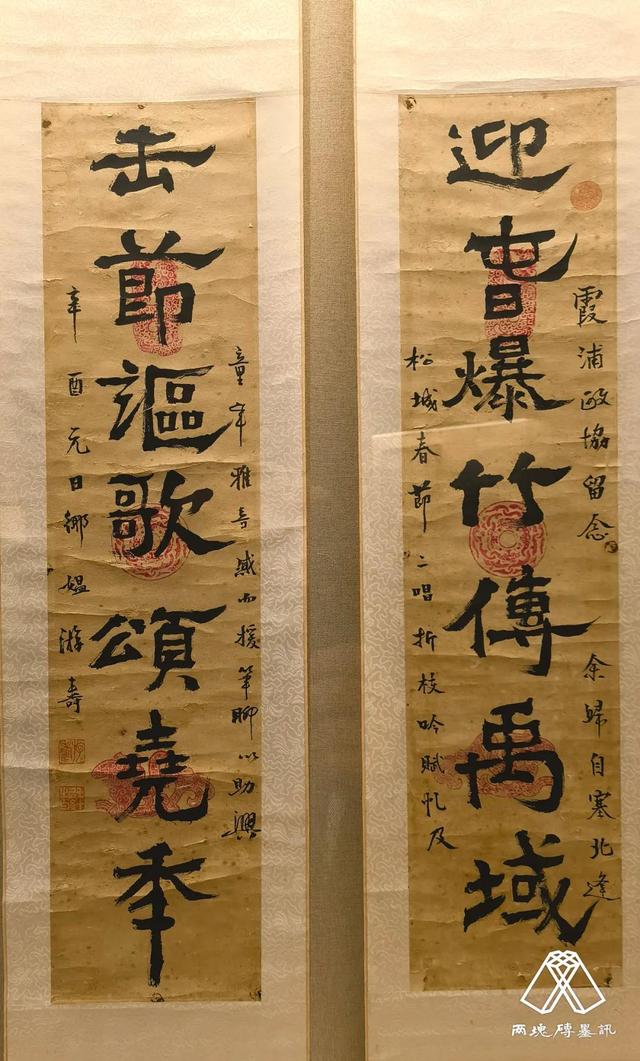 迎旾爆竹傳禹域
霞浦政協留念
余歸自塞北逢
松城春節二唱折枝吟賦忆及
击節謳歌頌堯秊
童年雅感而援筆聊以助興
辛酉元日鄉媼游壽
两塊磚墨訊